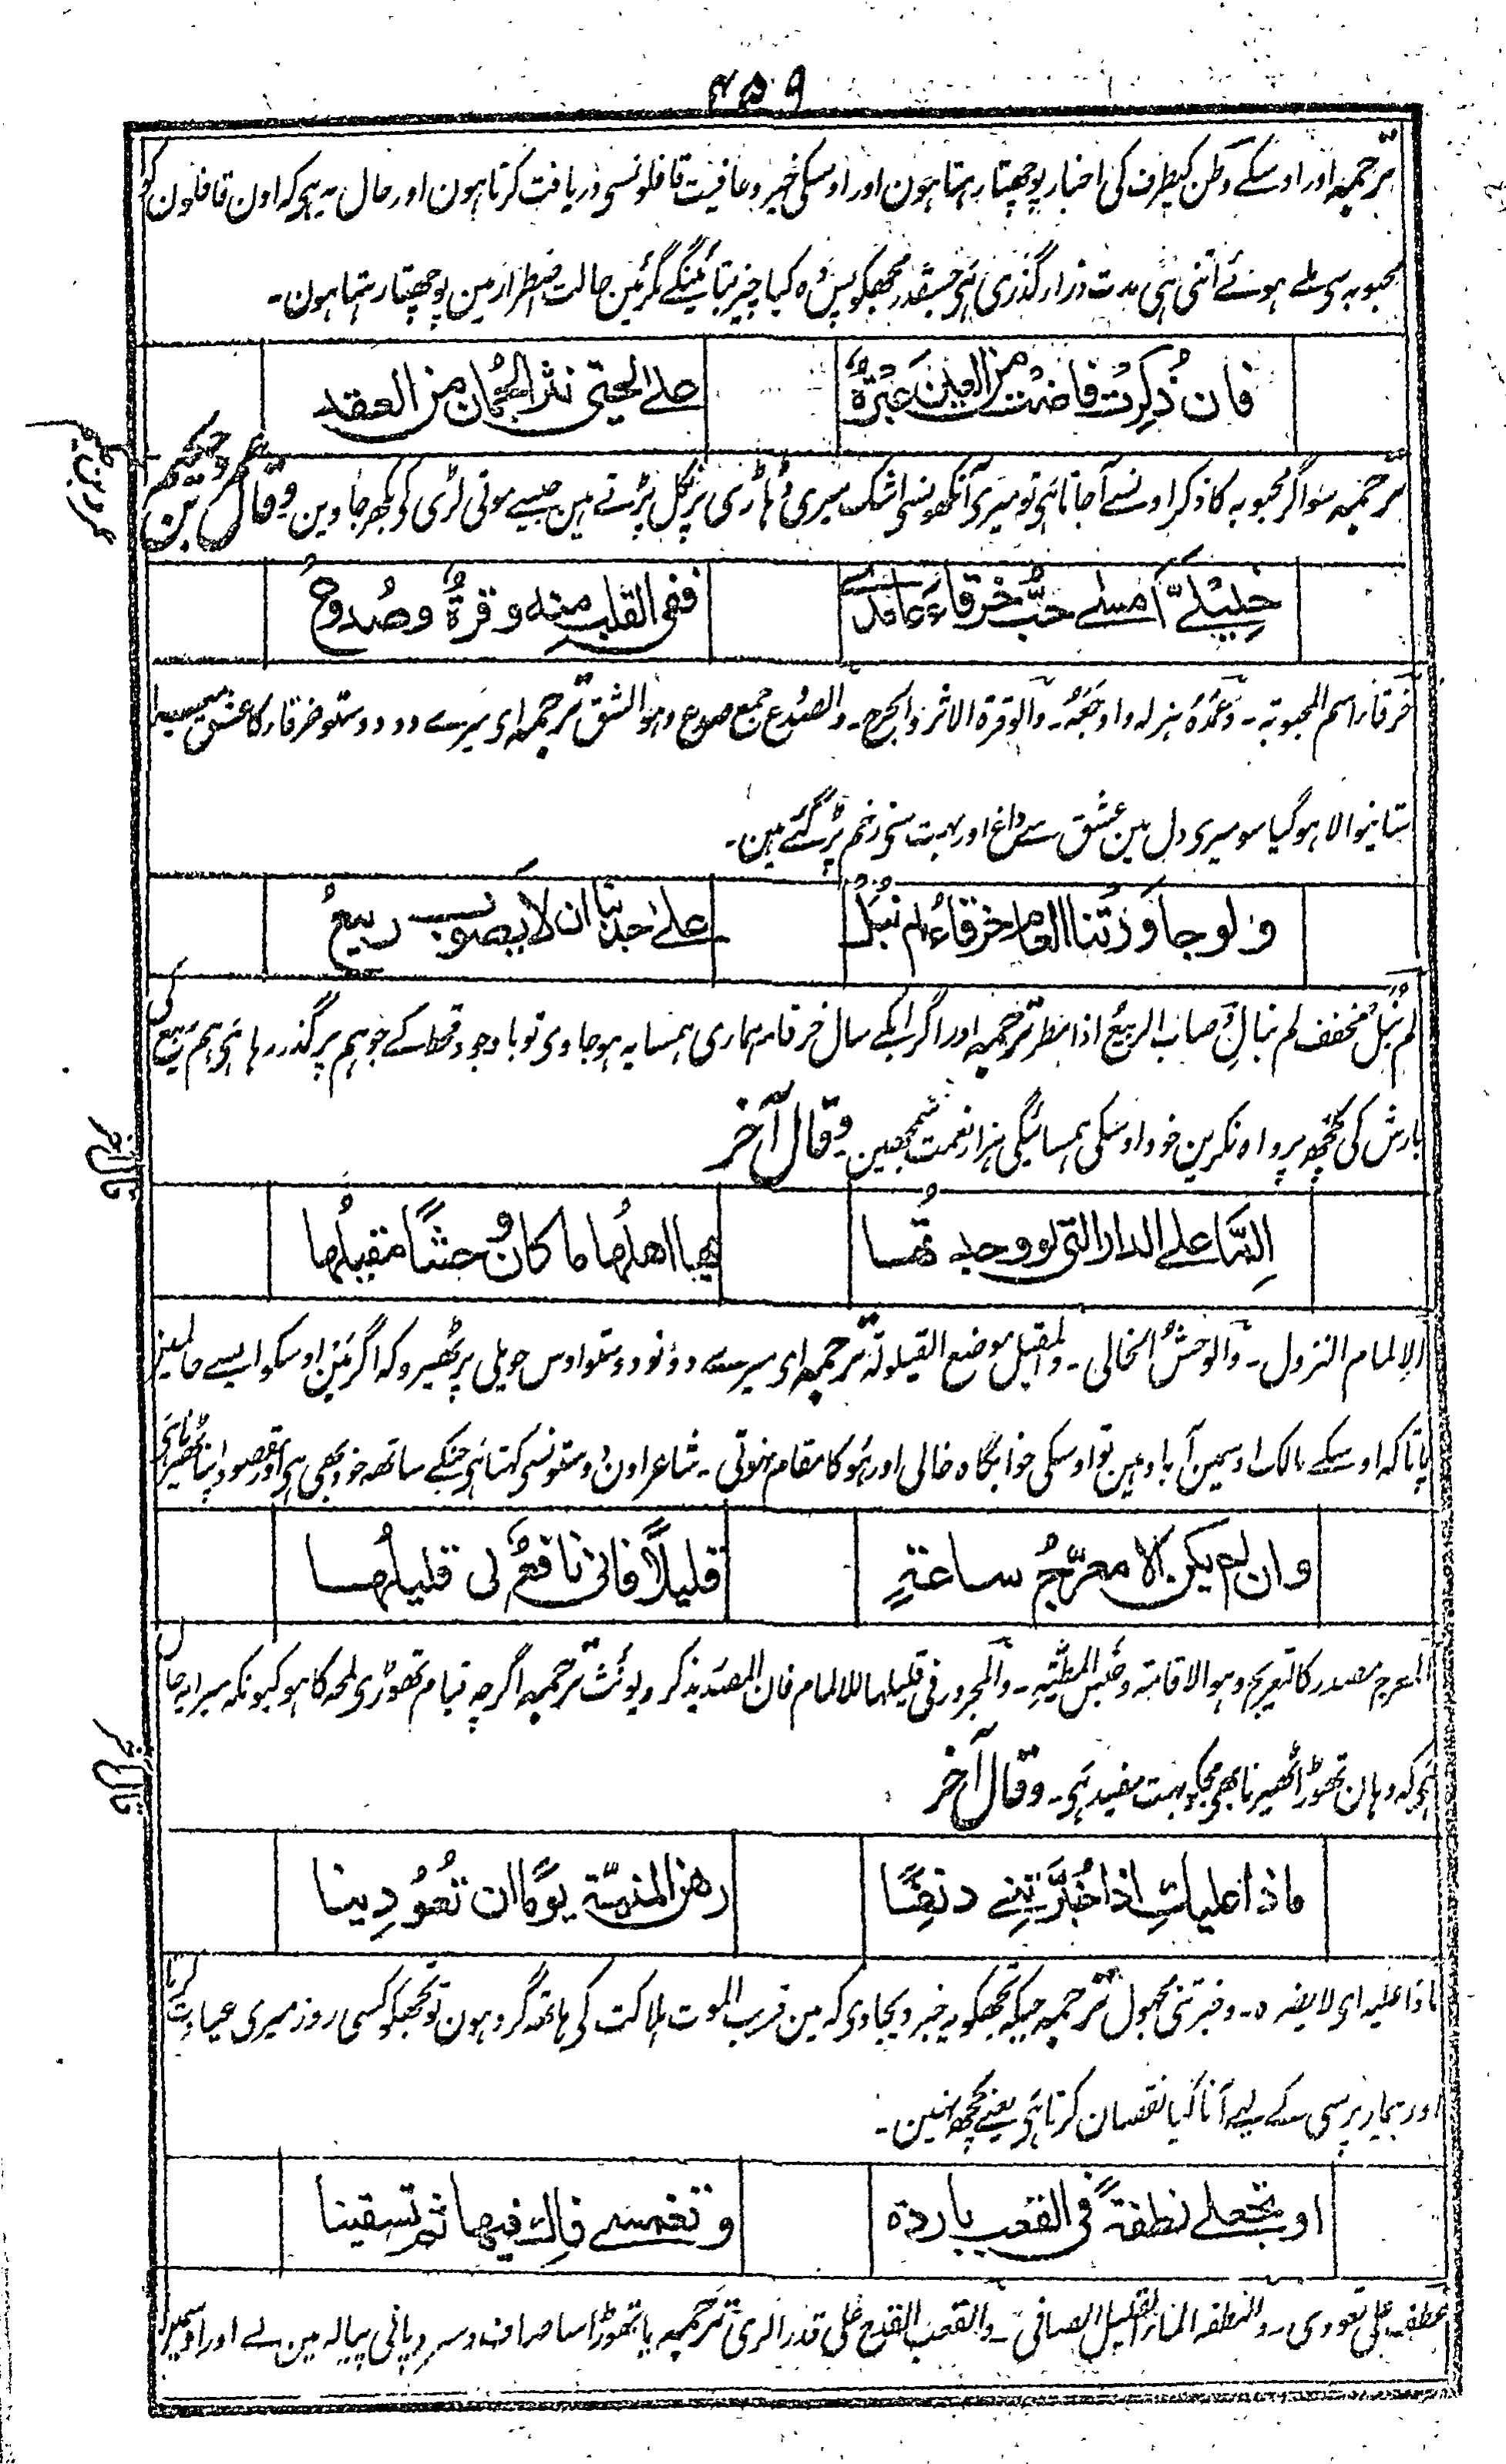 ۴۵۹
ترجمہ اور اوسکے وطن کیطرف کی اخبار پوچھتا رہتا ہون اور اوسکی خیر و عافیت قافلونسی دریافت کرتا ہون اور حال یہ ہی کہ اون قافلون کو
محبوبہ سی ملے ہوئے اتنی ہی مدت دراز گذری ہی جسقدر مجھکو پس وہ کیا خبر بتائینگے مگر مین حالت اضطرار مین پوچھتا رہتا ہون۔
فان ذُكِرَت فاضت من العين عَبْرَةٌ
على لحيتى نثر الجُمان من العقد
ترجمہ سو اگر محبوبہ کا ذکر اونسے آجاتا ہی تو میری آنکھونسی اشک میری ڈہاڑی پر نکل پڑتے ہین جیسے موتی لڑی کی بکھر جاوین وقال عمرو بن حكيم
عمرو بن حكيم
خليلىّ امسى حبُّ خرقاءَ عامدى
ففى القلب منه وقرةٌ وصُدوعُ
خرقاء اسم المحبوبۃ۔ وعمَدَہ ہزلہ واوجعہ۔ والوقرۃ الاثر والجرح۔ والصدوع جمع صدع وہو الشق ترجمہ ای میرے دو دوستو خرقاء کا عشق میرا
ستانیوالا ہوگیا سو میری دل مین عشق سے داغ اور بہت سی زخم پڑ گئے ہین۔
ولو جاوَرَتنا العام خرقاءُ لم نُبَلْ
على جدبنا ان لا يصوب ربيعُ
لم نُبَلْ مخفف لم نبالِ وصاب الربیعُ اذا مطر ترجمہ اور اگر ابکے سال خرقاء ہماری ہمسایہ ہوجاوی تو باوجود قحط کے جو ہم پر گذر رہا ہی ہم ربیع کی
بارش کی کچھ پرواہ نکرین خود اوسکی ہمسائیگی ہزار نعمت سمجھین وقال آخر
وقال آخر
اَلِمَّا على الدار التى لو وجدتُّها
بها اهلُها ما كان وحشًا مقيلُها
الالمام النزول۔ والوحش الخالی۔ والمقیل موضع القیلولۃ ترجمہ ای میرے دونو دوستو اوس حویلی پر ٹھیرو کہ اگر مین اوسکو ایسے حالمین
پاتا کہ اوسکے مالک اوسمین آباد ہین تو اوسکی خوابگاہ خالی اور ہُو کا مقام نہوتی۔ شاعر اون دوستونسی کہتا ہی جنکے ساتھ خود بھی ہی اور مقصود اپنا ٹھیرنا ہی
وان لم يكن الا معرّجُ ساعةٍ
قليلًا فانى نافعٌ لى قليلُها
المعرج مصدر کالتعریج وہو الاقامۃ وحبس المطیۃ۔ والمجرور فی قلیلہا للالمام فان المصدر یذکر ویؤنث ترجمہ اگرچہ قیام تھوڑی لمحہ کا ہو کیونکہ میرا یہ حال
ہی کہ وہان تھوڑا ٹھیرنا بھی مجکو بہت مفید ہی۔ وقال آخر
وقال آخر
ماذا عليكِ اذا خُبِّرتِنى دنِفًا
رهن المنية يومًا ان تَعُودِينا
ماذا علیہ ای لا یضرہ۔ وخبرتنی مجہول ترجمہ جبکہ تجھکو یہ خبر دیجاوی کہ مین قریب الموت ہلاکت کی ہاتھ گرو ہون تو تجھکو کسی روز میری عیادت کرنا
اور بیمار پرسی کے لیے آنا کیا نقصان کرتا ہی یعنے کچھ نہین۔
او تجعلى نطفةً فى القعب باردة
وتغمسى فاكِ فيها ثم تسقينا
عطف علی تعودی۔ والنطفہ الماء القلیل الصافی۔ والقعب القدح علی قدر الری ترجمہ یا تھوڑا سا صاف و سرد پانی پیالہ مین لے اور اوسمین